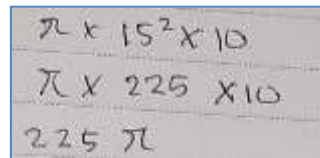 π x 15² x 10
π x 225 x 10
225 π